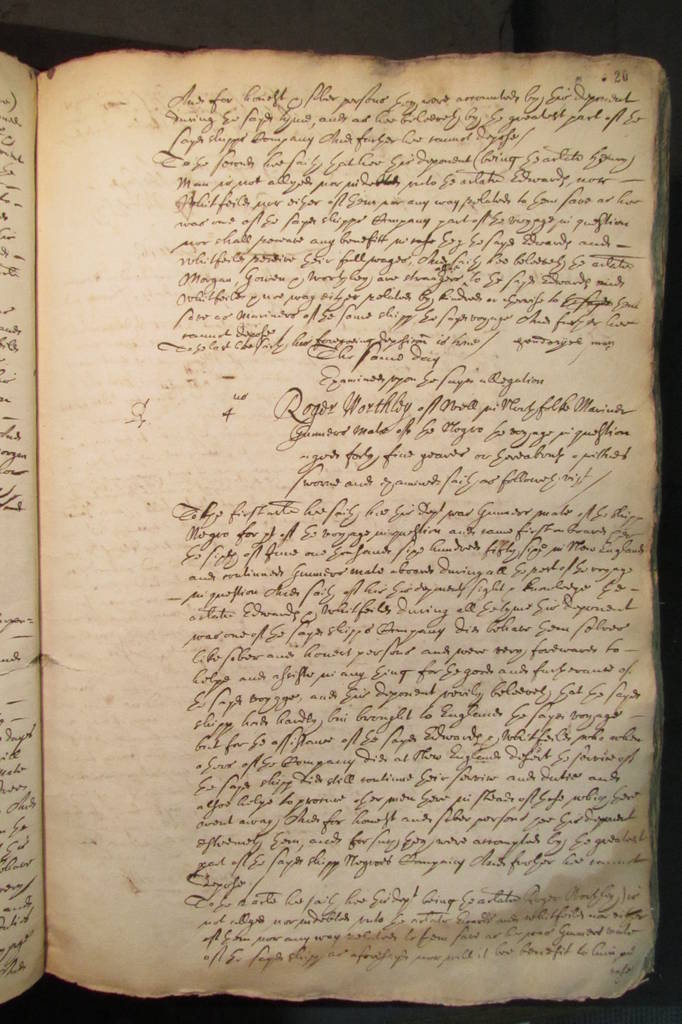 20
And for honest & sober persons they were accounted by this deponent
during the sayd tyme, and as hee beleeveth by the greatest part of the
sayd shipps Company And further hee cannot depose/
To the second hee saith that hee this deponent (being the arlate Henry
Man is not allyed nor indebted unto the arlate Edwards nor
Whitfeild nor either of them nor any way related to them save as hee
was one of the sayd shipps Company part of the voyage in question
nor shall receave any benefitt they the sayd Edwards and
Whitfeild receive their full wages, And saith hee beleeveth the arlate
Morgan, Gowen & Worthley are strangers to the sayd Edwards and
Whitfeild & noe way either related by kindred or otherwise to them
save as Mariners of the same shipp the sayd voyage And further hee
cannot depose
To the last hee saith his foregoeing deposition is true/
The same day
Examined upon the sayd allegation
4us
Roger Worthley of Well in Northfolke Mariner
Gunners Mate of the Negro the voyage in question
aged forty five yeares or thereabouts a witnes
sworne and examined saith as followeth vizt/
To the first arle hee saith hee this dept was Gunners mate of the shipp
Negro for pt of the voyage in question and came first aboard her
the of June one thousand sixe hundred fifty sixe in New England
and continued Gunners mate aboard during all the rest of the voyage
in question And saith of his this deponents sight & knowledge the
arlate Edwards & Whitfeild during all the tyme this deponent
was one of the sayd shipps Company did behave them selves
like sober and honest persons and were very forewards to
helpe and assiste in any thing for the good and furtherance of
the sayd voyage, and this deponent verily beleeveth that the sayd
shipp had hardly bin brought to England the sayd voyage
but for the assistance of the sayd Edwards & Whitfeild who when
others of the Company did at New England desert the service of
the sayd shipp did still continue their service and dutie and
alsoe helpe to procure other men there in stead of those which there
went away, And for honest and sober persons hee this deponent
esteemeth them, and for such they were accompted by the greatest
part of the sayd shipp Negroes Company And further hee cannot
depose.
To the arle hee saith hee this dept being the arlate Roger Worthley) is
not allyed nor indebted unto the arlate Edwards and Whitfeild nor either
of them nor any way related to them save as hee was Gunners mate
of the sayd shipp as aforesayd nor will it bee benefit to him in